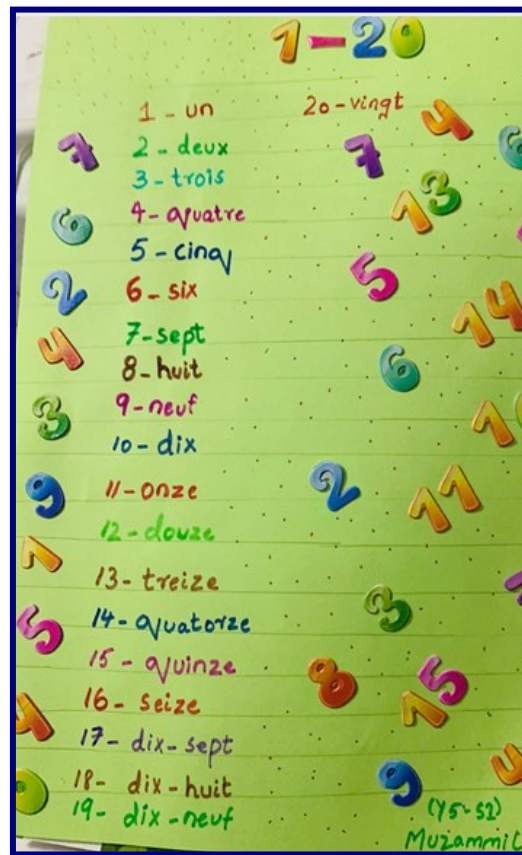 1-20
1 - un
20-vingt
2 - deux
3 - trois
4- quatre
5 - cinq
6 - six
7-sept
8-huit
9-neuf
10-dix
11-onze
12-douze
13-treize
14-quatorze
15-quinze
16-seize
17-dix-sept
18-dix-huit
19-dix-neuf
7
6
2
4
3
9
1
5
4
4
7
13
5
14
6
2
11
3
8
5
1
9
(Y5-S2)